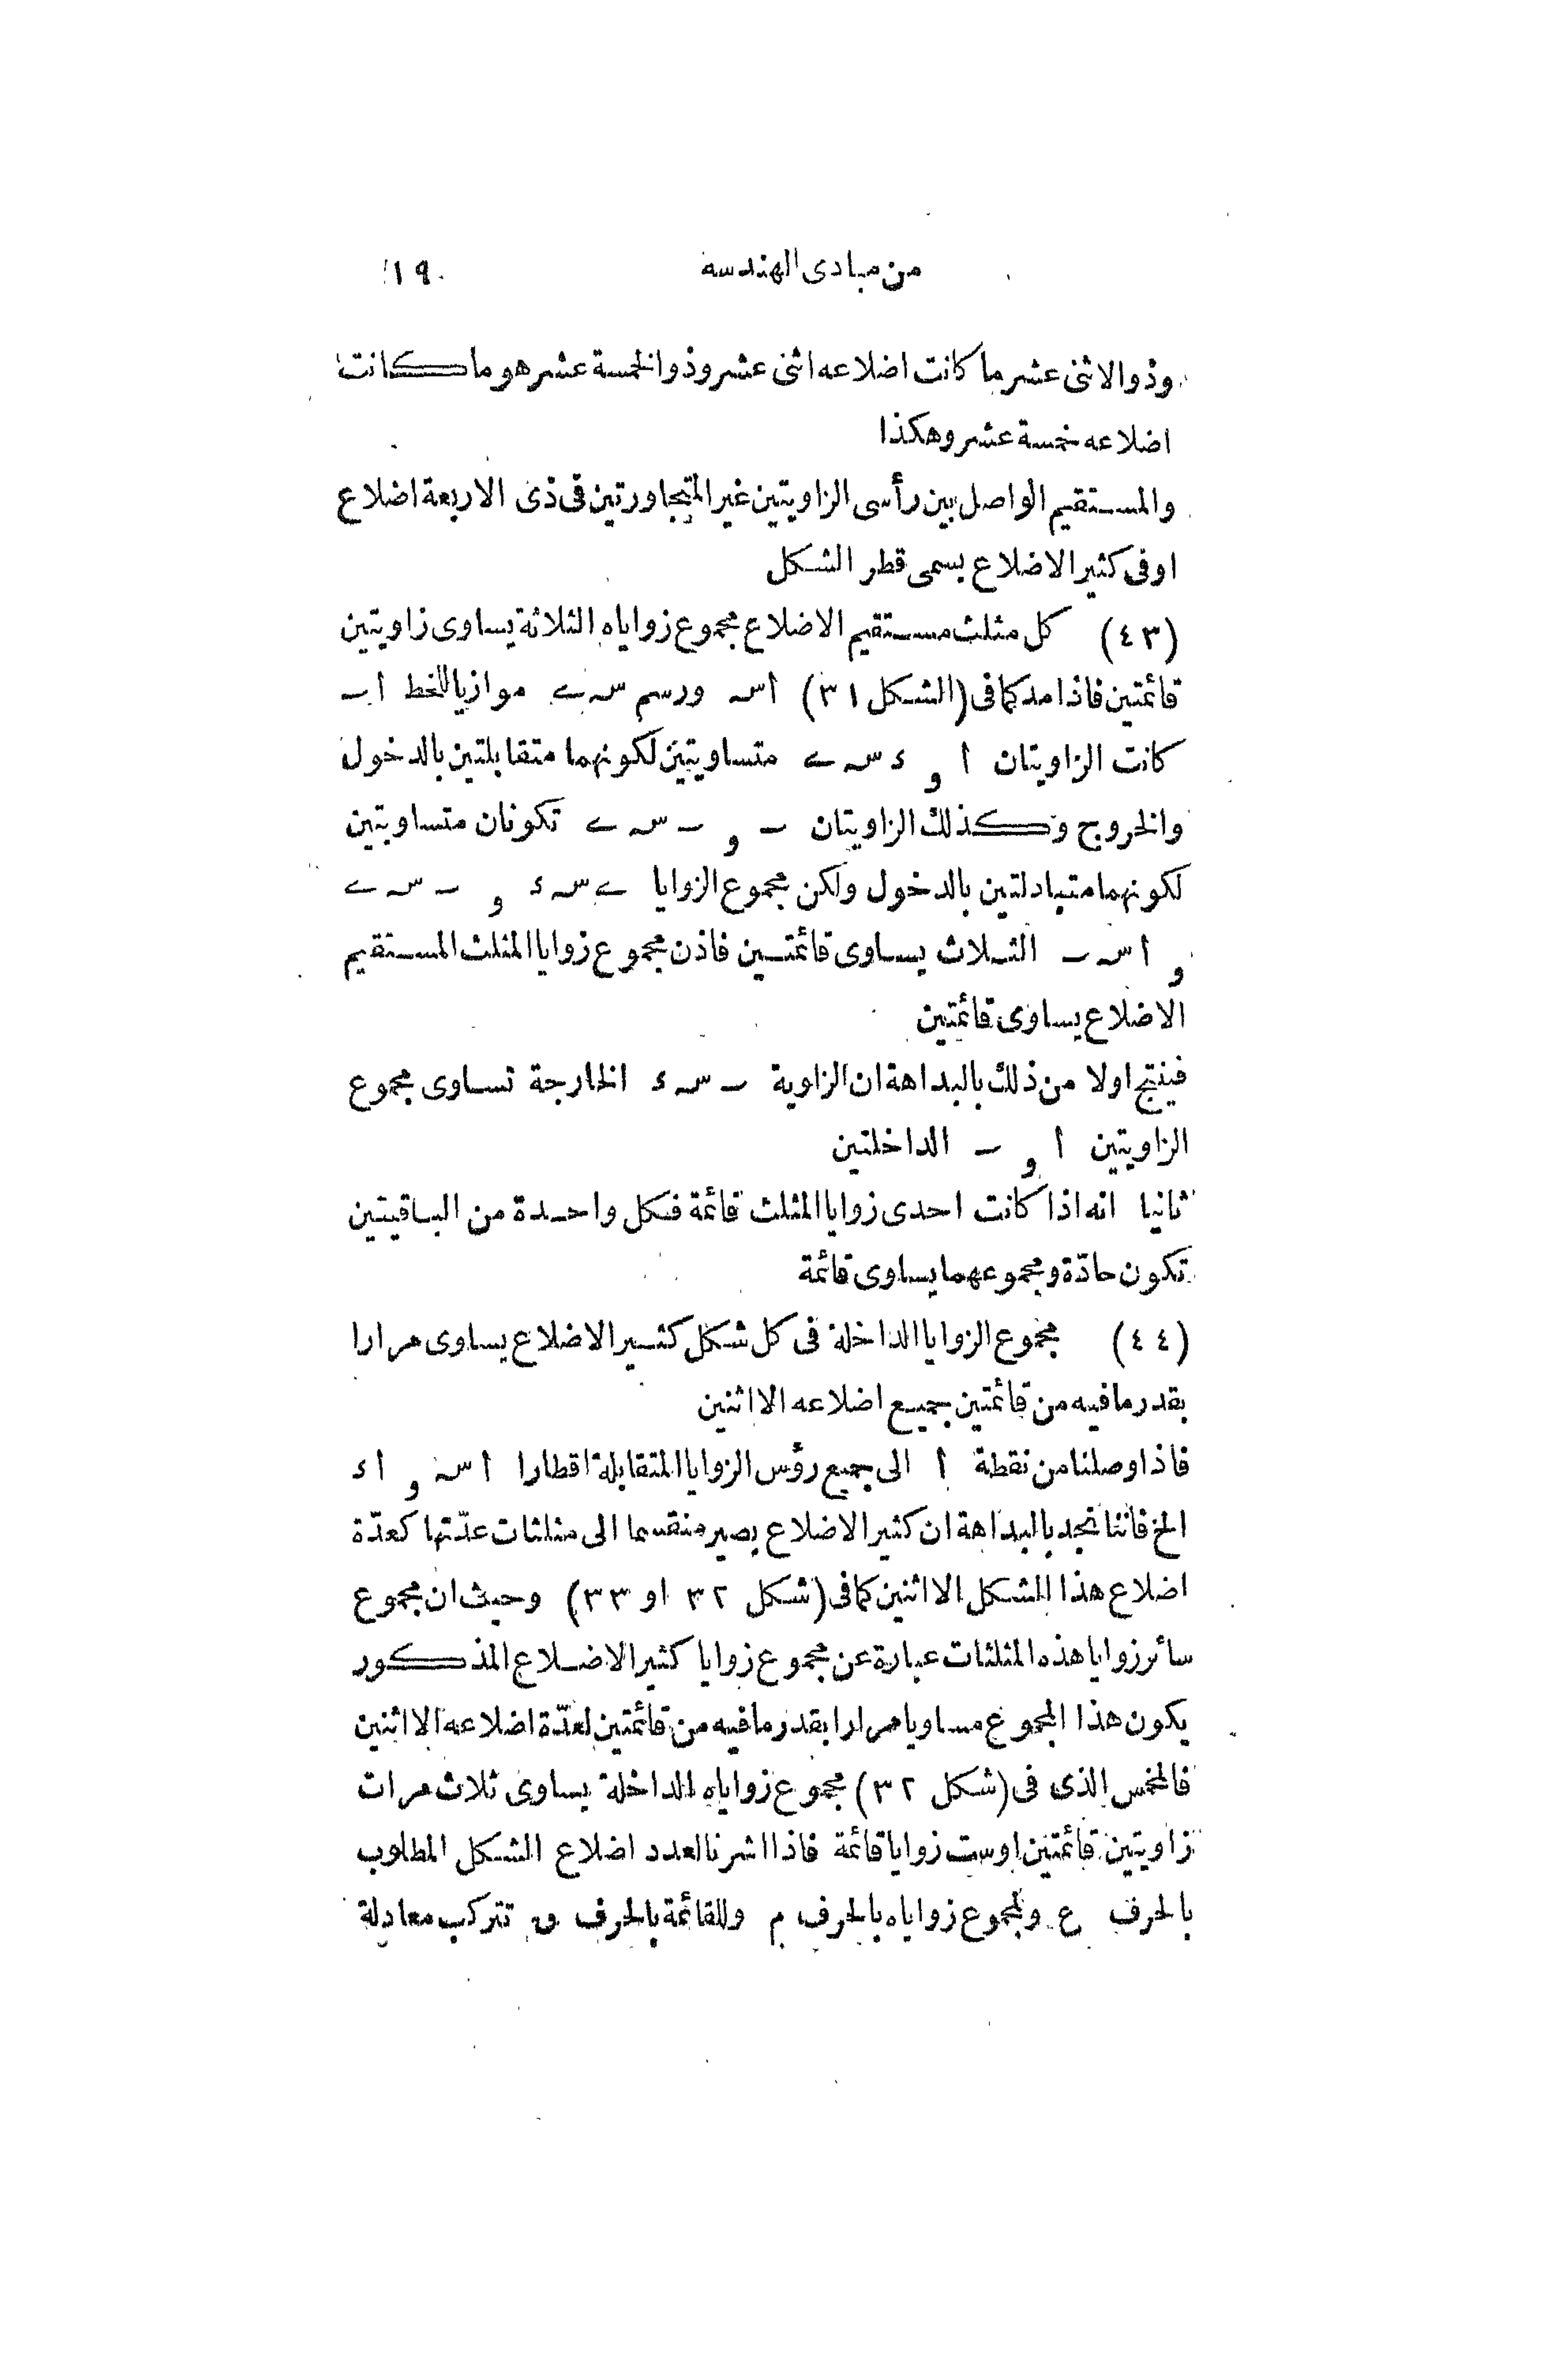 من مبادى الهندسه ١٩
وذو الاثنى عشر ما كانت اضلاعه اثنى عشر وذو الخمسة عشر هو ما كانت
اضلاعه خمسة عشر وهكذا
والمستقيم الواصل بين رأسى الزاويتين غير المتجاورتين فى ذى الاربعة اضلاع
او فى كثير الاضلاع يسمى قطر الشكل
(٤٣) كل مثلث مستقيم الاضلاع مجموع زواياه الثلاثة يساوى زاويتين
قائمتين فاذا مد كما فى (الشكل ٣١) اسہ ورسم سہ ے موازيا للخط اٮ
كانت الزاويتان ا و ء سہ ے متساويتين لكونهما متقابلتين بالدخول
والخروج وكذلك الزاويتان ٮ و ٮ سہ ے تكونان متساويتين
لكونهما متبادلتين بالدخول ولكن مجموع الزوايا ے سہ ء و ٮ سہ ے
و ا سہ ٮ الثلاث يساوى قائمتين فاذن مجموع زوايا المثلث المستقيم
الاضلاع يساوى قائمتين
فينتج اولا من ذلك بالبداهة ان الزاوية ٮ سہ ء الخارجة تساوى مجموع
الزاويتين ا و ٮ الداخلتين
ثانيا انه اذا كانت احدى زوايا المثلث قائمة فكل واحدة من الباقيتين
تكون حادّة ومجموعهما يساوى قائمة
(٤٤) مجموع الزوايا الداخلة فى كل شكل كثير الاضلاع يساوى مرارا
بقدر ما فيه من قائمتين بجميع اضلاعه الا اثنين
فاذا وصلنا من نقطة ا الى جميع رؤس الزوايا المتقابلة اقطارا ا سہ و ا ء
الخ فاننا نجد بالبداهة ان كثير الاضلاع يصير منقسما الى مثلثات عدّتها كعدّة
اضلاع هذا الشكل الا اثنين كما فى (شكل ٣٢ او ٣٣) وحيث ان مجموع
سائر زوايا هذه المثلثات عبارة عن مجموع زوايا كثير الاضلاع المذكور
يكون هذا المجموع مساويا مرارا بقدر ما فيه من قائمتين لعدّة اضلاعه الا اثنين
فالمخمس الذى فى (شكل ٣٢) مجموع زواياه الداخلة يساوى ثلاث مرات
زاويتين قائمتين او ست زوايا قائمة فاذا اشرنا لعدد اضلاع الشكل المطلوب
بالحرف ع ولمجموع زواياه بالحرف م وللقائمة بالحرف ق تتركب معادلة